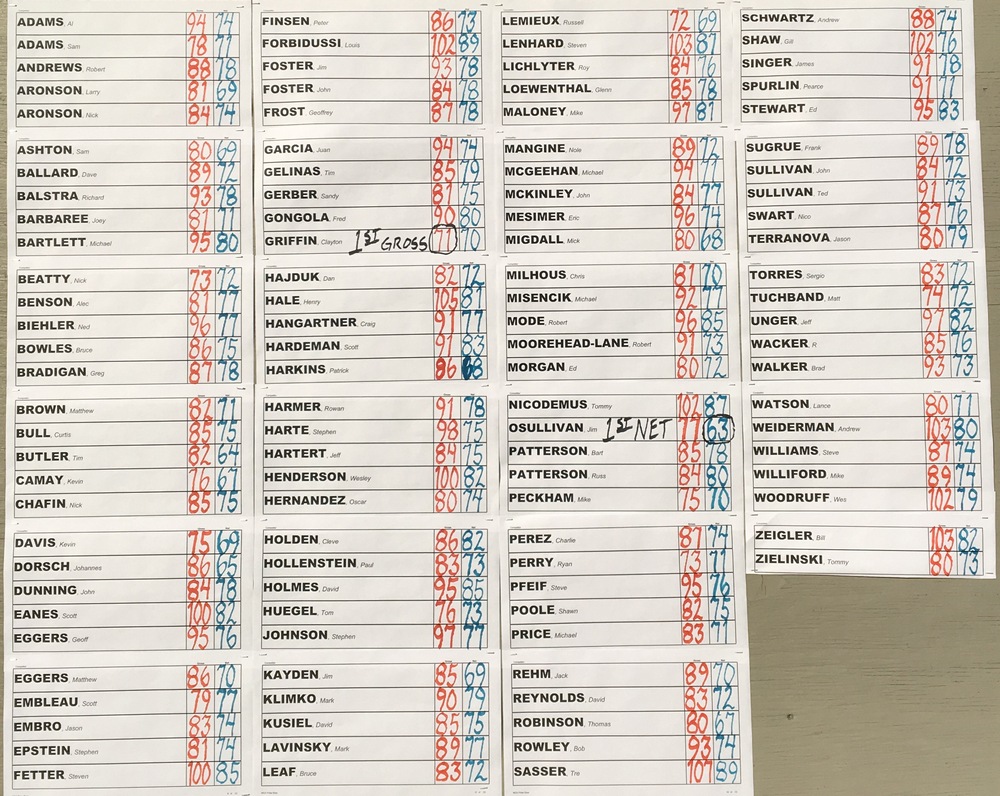 ADAMS, Al 94 74
ADAMS, Sam 78 71
ANDREWS, Robert 88 78
ARONSON, Larry 81 69
ARONSON, Nick 84 74
ASHTON, Sam 80 69
BALLARD, Dave 89 72
BALSTRA, Richard 93 78
BARBAREE, Joey 81 71
BARTLETT, Michael 95 80
BEATTY, Nick 73 72
BENSON, Alec 81 77
BIEHLER, Ned 96 77
BOWLES, Bruce 86 75
BRADIGAN, Greg 87 78
BROWN, Matthew 82 71
BULL, Curtis 85 75
BUTLER, Tim 82 64
CAMAY, Kevin 76 67
CHAFIN, Nick 85 75
DAVIS, Kevin 75 69
DORSCH, Johannes 86 65
DUNNING, John 84 78
EANES, Scott 100 82
EGGERS, Geoff 95 76
EGGERS, Matthew 86 70
EMBLEAU, Scott 79 77
EMBRO, Jason 83 74
EPSTEIN, Stephen 81 74
FETTER, Steven 100 85
FINSEN, Peter 86 73
FORBIDUSSI, Louis 102 89
FOSTER, Jim 93 78
FOSTER, John 84 78
FROST, Geoffrey 87 78
GARCIA, Juan 94 74
GELINAS, Tim 85 79
GERBER, Sandy 81 75
GONGOLA, Fred 90 80
GRIFFIN, Clayton 1ST GROSS 71 70
HAJDUK, Dan 82 72
HALE, Henry 105 87
HANGARTNER, Craig 91 77
HARDEMAN, Scott 91 83
HARKINS, Patrick 86 68
HARMER, Rowan 91 78
HARTE, Stephen 98 75
HARTERT, Jeff 84 75
HENDERSON, Wesley 100 82
HERNANDEZ, Oscar 80 74
HOLDEN, Cleve 86 82
HOLLENSTEIN, Paul 83 73
HOLMES, David 95 85
HUEGEL, Tom 76 73
JOHNSON, Stephen 97 77
KAYDEN, Jim 85 69
KLIMKO, Mark 90 79
KUSIEL, David 85 75
LAVINSKY, Mark 89 77
LEAF, Bruce 83 72
LEMIEUX, Russell 72 69
LENHARD, Steven 103 87
LICHLYTER, Roy 84 76
LOEWENTHAL, Glenn 85 78
MALONEY, Mike 97 81
MANGINE, Nole 89 72
MCGEEHAN, Michael 94 77
MCKINLEY, John 84 77
MESIMER, Eric 96 74
MIGDALL, Mick 80 68
MILHOUS, Chris 81 70
MISENCIK, Michael 92 77
MODE, Robert 96 85
MOOREHEAD-LANE, Robert 91 73
MORGAN, Ed 80 72
NICODEMUS, Tommy 102 87
OSULLIVAN, Jim 1ST NET 77 63
PATTERSON, Bart 85 78
PATTERSON, Russ 84 80
PECKHAM, Mike 75 70
PEREZ, Charlie 87 74
PERRY, Ryan 73 71
PFEIF, Steve 95 76
POOLE, Shawn 82 75
PRICE, Michael 83 71
REHM, Jack 89 70
REYNOLDS, David 83 72
ROBINSON, Thomas 80 67
ROWLEY, Bob 93 74
SASSER, Tre 107 89
SCHWARTZ, Andrew 88 74
SHAW, Gill 102 76
SINGER, James 91 78
SPURLIN, Pearce 91 77
STEWART, Ed 95 83
SUGRUE, Frank 89 78
SULLIVAN, John 84 72
SULLIVAN, Ted 91 73
SWART, Nico 87 76
TERRANOVA, Jason 80 79
TORRES, Sergio 83 72
TUCHBAND, Matt 74 72
UNGER, Jeff 97 82
WACKER, R 85 76
WALKER, Brad 93 73
WATSON, Lance 80 71
WEIDERMAN, Andrew 103 80
WILLIAMS, Steve 87 74
WILLIFORD, Mike 89 74
WOODRUFF, Wes 102 79
ZEIGLER, Bill 103 82
ZIELINSKI, Tommy 80 73